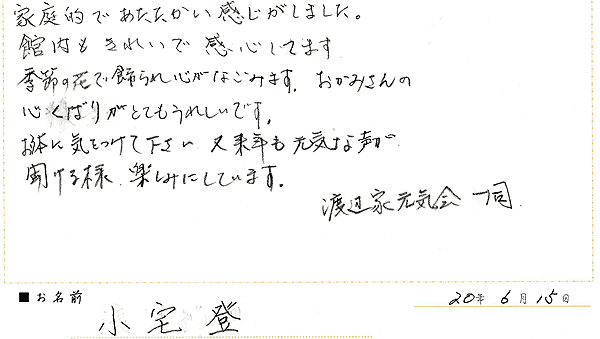 家庭的であたたかい感じがしました。
館内もきれいで感心してます
季節の花で飾られ心がなごみます。おかみさんの
心くばりがとてもうれしいです。
お体に気をつけて下さい 又来年も元気な声が
聞ける様、楽しみにしています。
渡辺家元気会一同
■お名前
20年 6月 15日
小宅 登